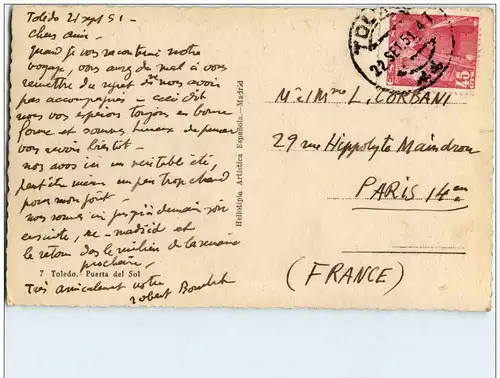 Toledo 21 sept 51 -
Chers amis -
Quand je vous raconterai notre
voyage, vous aurez du mal à vous
remettre du regret de ne nous avoir
pas accompagnés - ceci dit
nous vous espérons toujours en bonne
forme et sommes heureux de penser
vous revoir bientôt -
nous avons ici un véritable été,
peut être même un peu trop chaud
pour mon goût -
nous sommes ici jusqu'à demain soir
ensuite, re-madrid et
le retour dans le milieu de la semaine
prochaine -
7 Toledo. Puerta del Sol
Très amicalement votre
robert
Heliotipia Artística Española.-Madrid
TOLEDO
22 SEP 51
45
M. et Mme L. CORBANI
29 rue Hippolyte Maindron
PARIS 14em
(FRANCE)